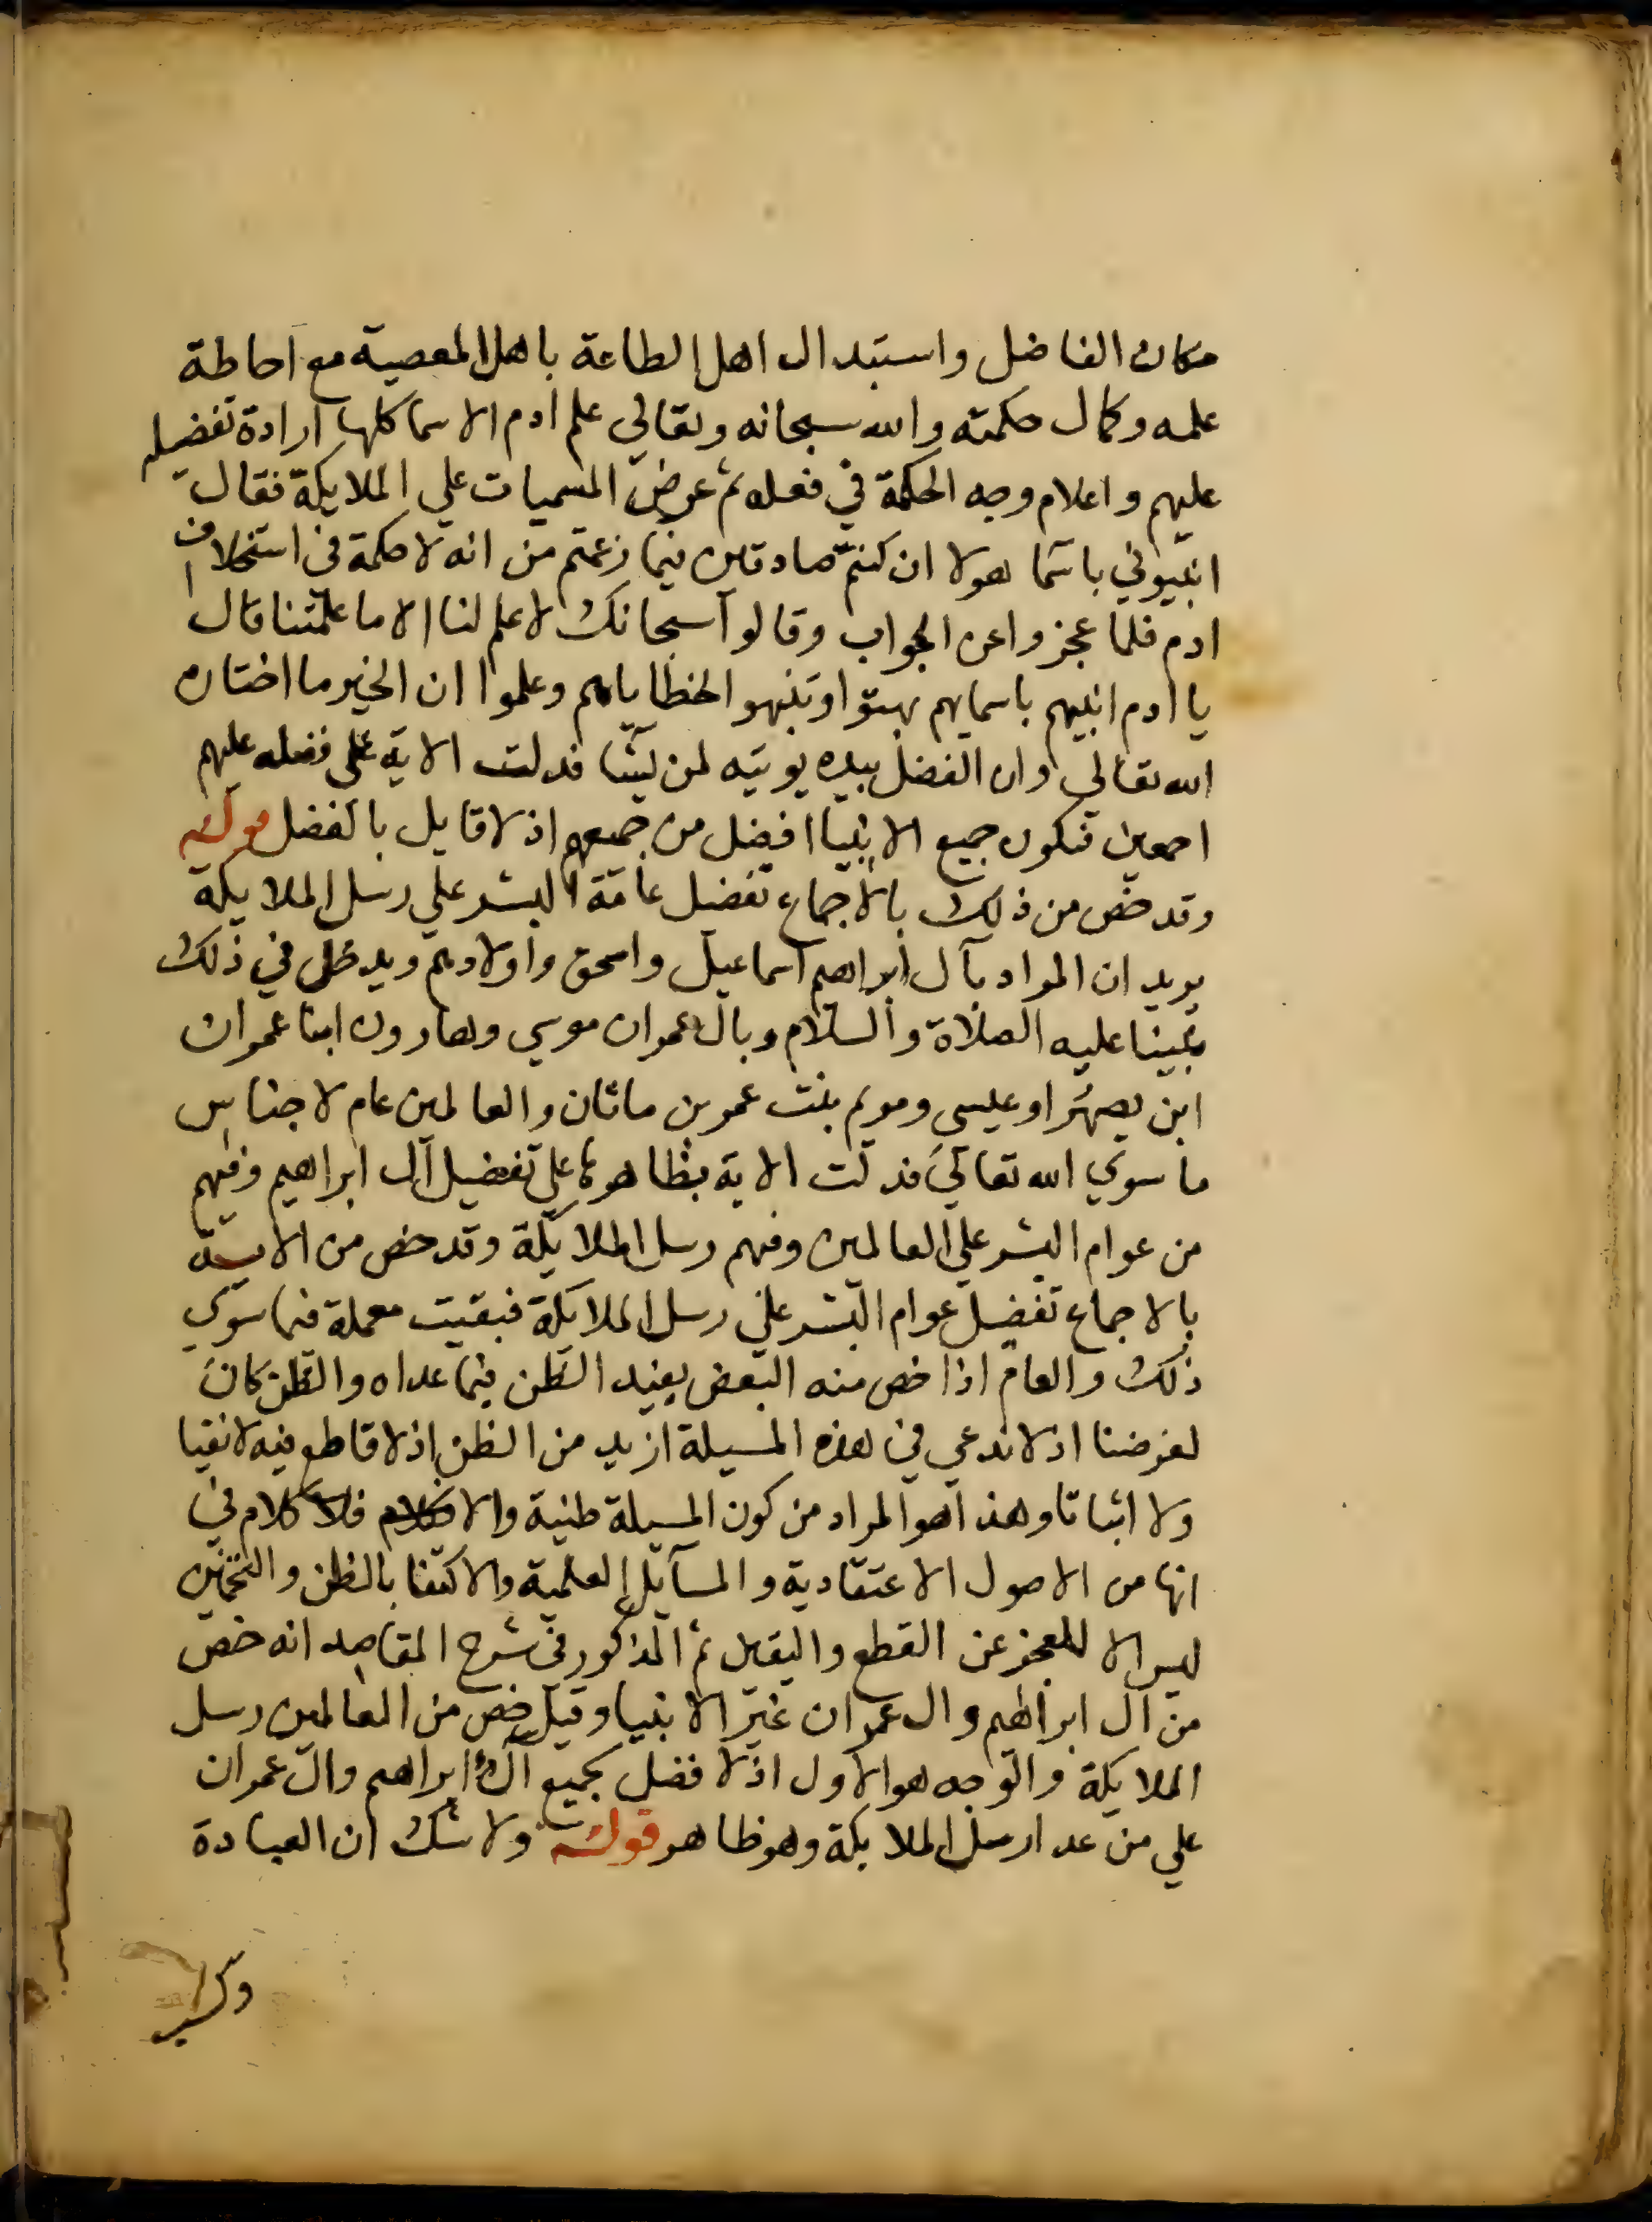 مكان الفاضل واستبدال اهل الطاعة باهل المعصية مع احاطة
علمه وكمال حكمته والله سبحانه وتعالي علم ادم الاسما كلها ارادة تفضيله
عليهم واعلام وجه الحكمة في فعله ثم عرض المسميات علي الملايكة فقال
انبيوني باسما هولا ان كنتم صادقين فيما زعمتم من انه لا حكمة في استخلاف
ادم فلما عجزوا عن الجواب وقالوا سبحانك لا علم لنا الا ما علمتنا قال
يا ادم انبيهم باسمايهم بهتوا وتنبهو الخطاياهم وعلموا ان الخير ما اختاره
الله تعالي وان الفضل بيده يوتيه لمن يشا فدلت الاية على فضله عليهم
اجمعين فيكون جميع الانبيا افضل من جميعهم اذ لا قايل بالفضل قوله
وقد خص من ذلك بالاجماع تفضيل عامة البشر علي رسل الملايكة
يريد ان المراد بآل ابراهيم اسماعيل واسحق واولادهم ويدخل في ذلك
نبينا عليه الصلاة والسلام وبال عمران موسي وهارون ابنا عمران
ابن يصهر او عيسي ومريم بنت عمرن ماثان والعالمين عام لاجناس
ما سوي الله تعالي فدلت الاية بظاهرها علي تفضيل آل ابراهيم وفيهم
من عوام البشر علي العالمين وفيهم رسل الملايكة وقد خص من الاية
بالاجماع تفضيل عوام البشر علي رسل الملايكة فبقيت معملة فيما سوي
ذلك والعام اذا خص منه البعض يفيد الظن فيما عداه والظن كان
لغرضنا اذ لا ندعي في هذه المسيلة ازيد من الظن اذ لا قاطع فيه لا نفيا
ولا اثباتا وهذا هو المراد من كون المسيلة ظنية والا فلا كلام في
انها من الاصول الاعتقادية والمسآيل العلمية والاكتفا بالظن والتخمين
ليس الا للعجز عن القطع واليقين ثم المذكور في شرح المقاصد انه خص
من آل ابراهيم وال عمران غير الانبيا وقيل خص من العالمين رسل
الملايكة والوجه هو الاول اذ لا فضل بجميع آل ابراهيم وال عمران
علي من عدا رسل الملايكة وهو ظاهر قوله ولا شك ان العبادة
وكسب